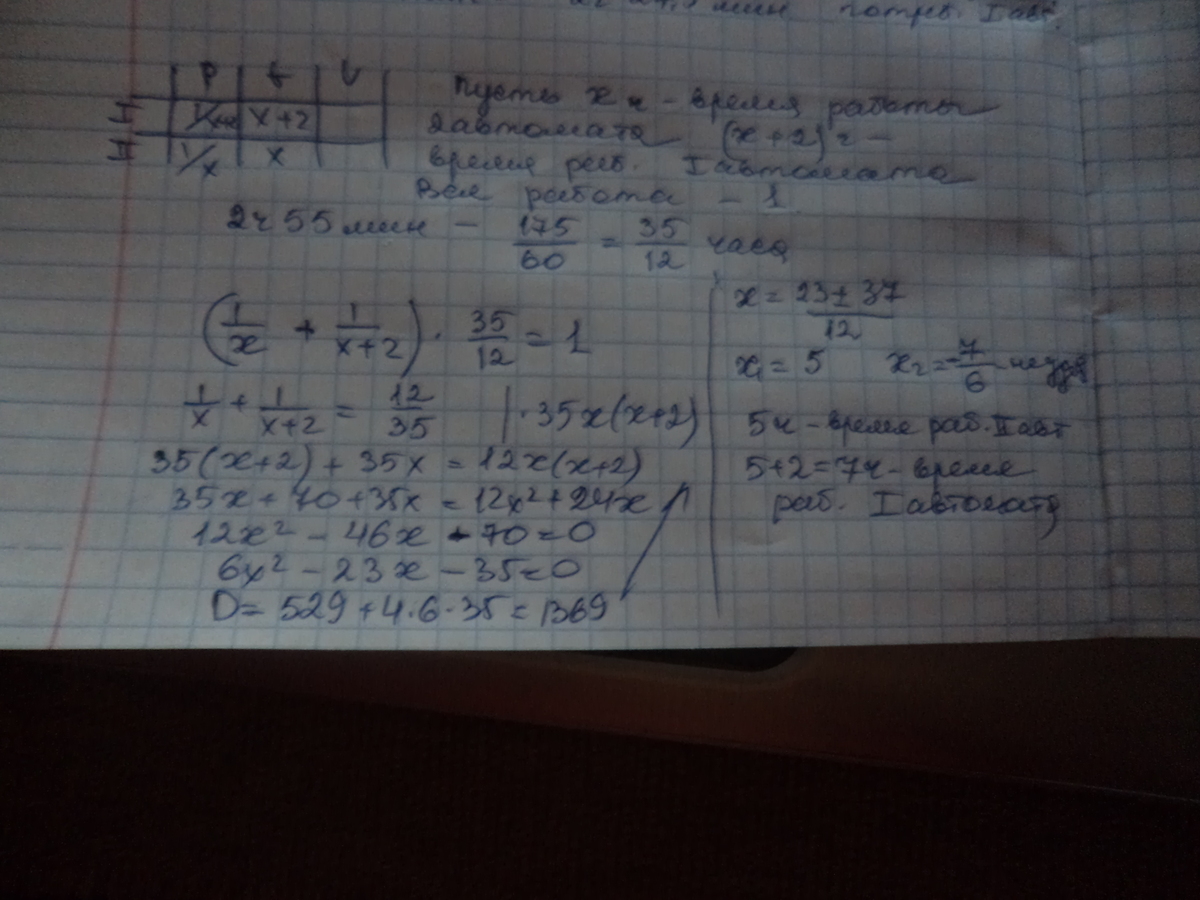 мин потреб. I авт.
P t V
I 1/x+2 x+2
II 1/x x
Пусть x ч - время работы
2 автомата (x+2) ч -
время раб. I автомата
Вся работа - 1
2ч 55 мин - 175/60 = 35/12 часа
(1/x + 1/x+2) · 35/12 = 1
1/x + 1/x+2 = 12/35 | · 35x(x+2)
35(x+2) + 35x = 12x(x+2)
35x + 70 + 35x = 12x² + 24x
12x² - 46x - 70 = 0
6x² - 23x - 35 = 0
D = 529 + 4·6·35 = 1369
x = 23 ± 37/12
x₁ = 5 x₂ = -7/6 - не уд
5ч - время раб. II авт
5+2=7ч - время
раб. I автомата